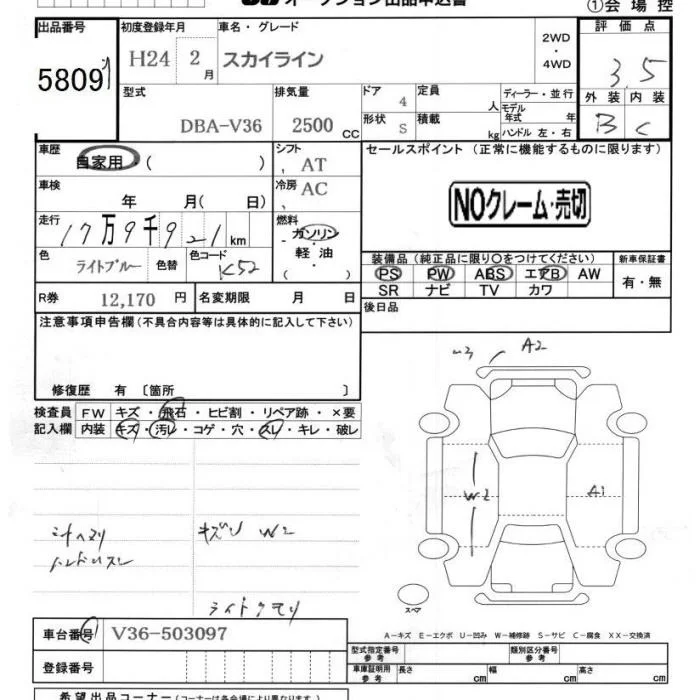 オークション出品申込書 ①会場控
出品番号 初度登録年月 車名・グレード 2WD 評価点
5809 H24 2月 スカイライン ・4WD 3.5
型式 排気量 ドア 定員 ディーラー・並行 外装 内装
DBA-V36 2500cc 4 人 モデル年式 年 B C
形状 S 積載 kg ハンドル 左・右
車歴 自家用・( ) シフト AT セールスポイント (正常に機能するものに限ります)
車検 年 月( 日) 冷房 AC
NOクレーム・売切
走行 17万9千921km 燃料 ガソリン
・軽油
・( )
色 ライトブルー 色替 色コード K52
装備品 (純正品に限り○をつけてください) 新車保証書
PS PW ABS エアB AW 有・無
SR ナビ TV カワ
R券 12,170円 名変期限 月 日 後日品
注意事項申告欄 (不具合内容等は具体的に記入して下さい)
修復歴 有 〔箇所 〕
A2
検査員 FW キズ・飛石・ヒビ割・リペア跡・×要
記入欄 内装 キズ・汚レ・コゲ・穴・スレ・キレ・破レ
W2 A1
キズ W2
ハンドルスレ
ライトクモリ
スペア
車台番号 V36-503097
A-キズ E-エクボ U-凹み W-補修跡 S-サビ C-腐食 XX-交換済
登録番号
型式指定番号 参考 類別区分番号 参考
車庫証明用 参考 長さ cm 幅 cm 高さ cm
希望出品コーナー (コーナーは各会場により異なります)